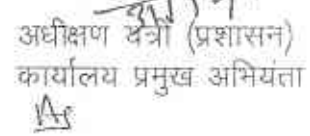 अधीक्षण यंत्री (प्रशासन)
कार्यालय प्रमुख अभियंता